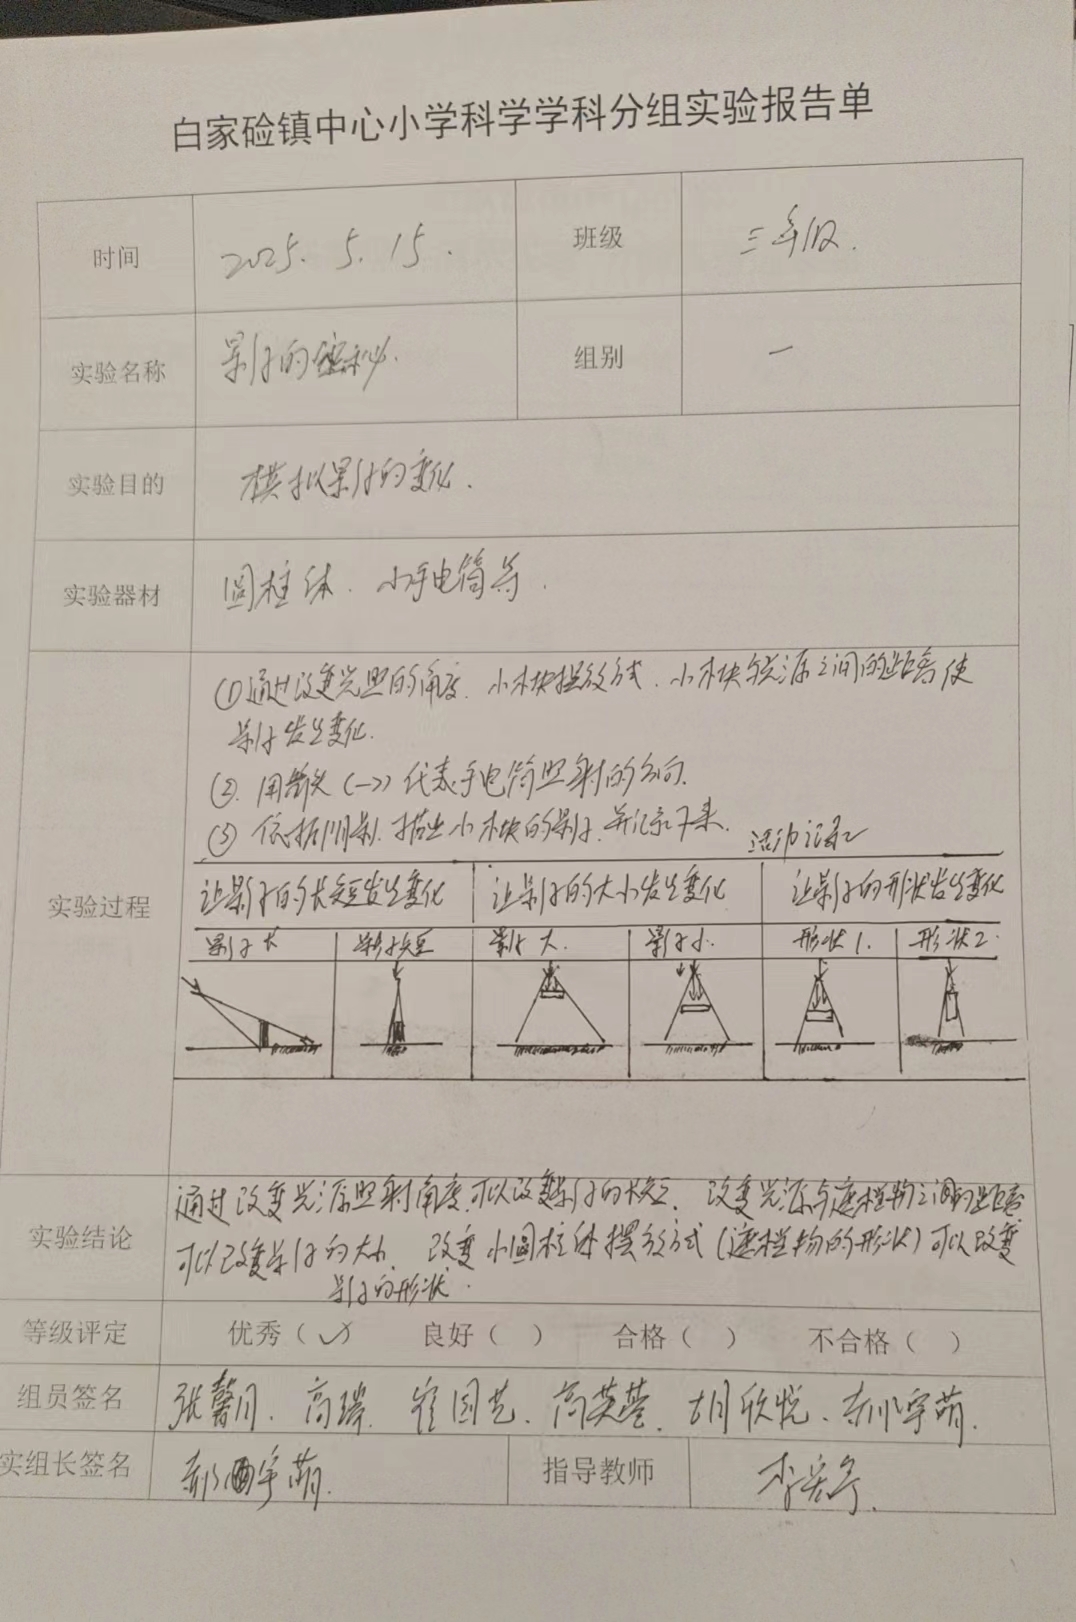 白家硷镇中心小学科学学科分组实验报告单
时间 2025.5.15. 班级 三年级.
实验名称 影子的秘秘. 组别 一
实验目的 模拟影子的变化.
实验器材 圆柱体. 小手电筒等.
实验过程
(1)通过改变光照的角度. 小木块摆放方式. 小木块与光源之间的距离使
影子发生变化.
(2). 用箭头(→)代表手电筒照射的方向.
(3) 依据阴影. 描出小木块的影子. 并记录下来.
活动记录
让影子的长短发生变化 让影子的大小发生变化 让影子的形状发生变化
影子长 影子短 影子大. 影子小. 形状1. 形状2.
实验结论
通过改变光源照射角度.可以改变影子的长短. 改变光源与遮挡物之间的距离
可以改变影子的大小. 改变小圆柱体摆放方式(遮挡物的形状)可以改变
影子的形状.
等级评定 优秀(✓) 良好( ) 合格( ) 不合格( )
组员签名 张馨月. 高瑞. 崔国艺. 高英 胡欣悦. 宇萌.
实组长签名 宇萌. 指导教师 李